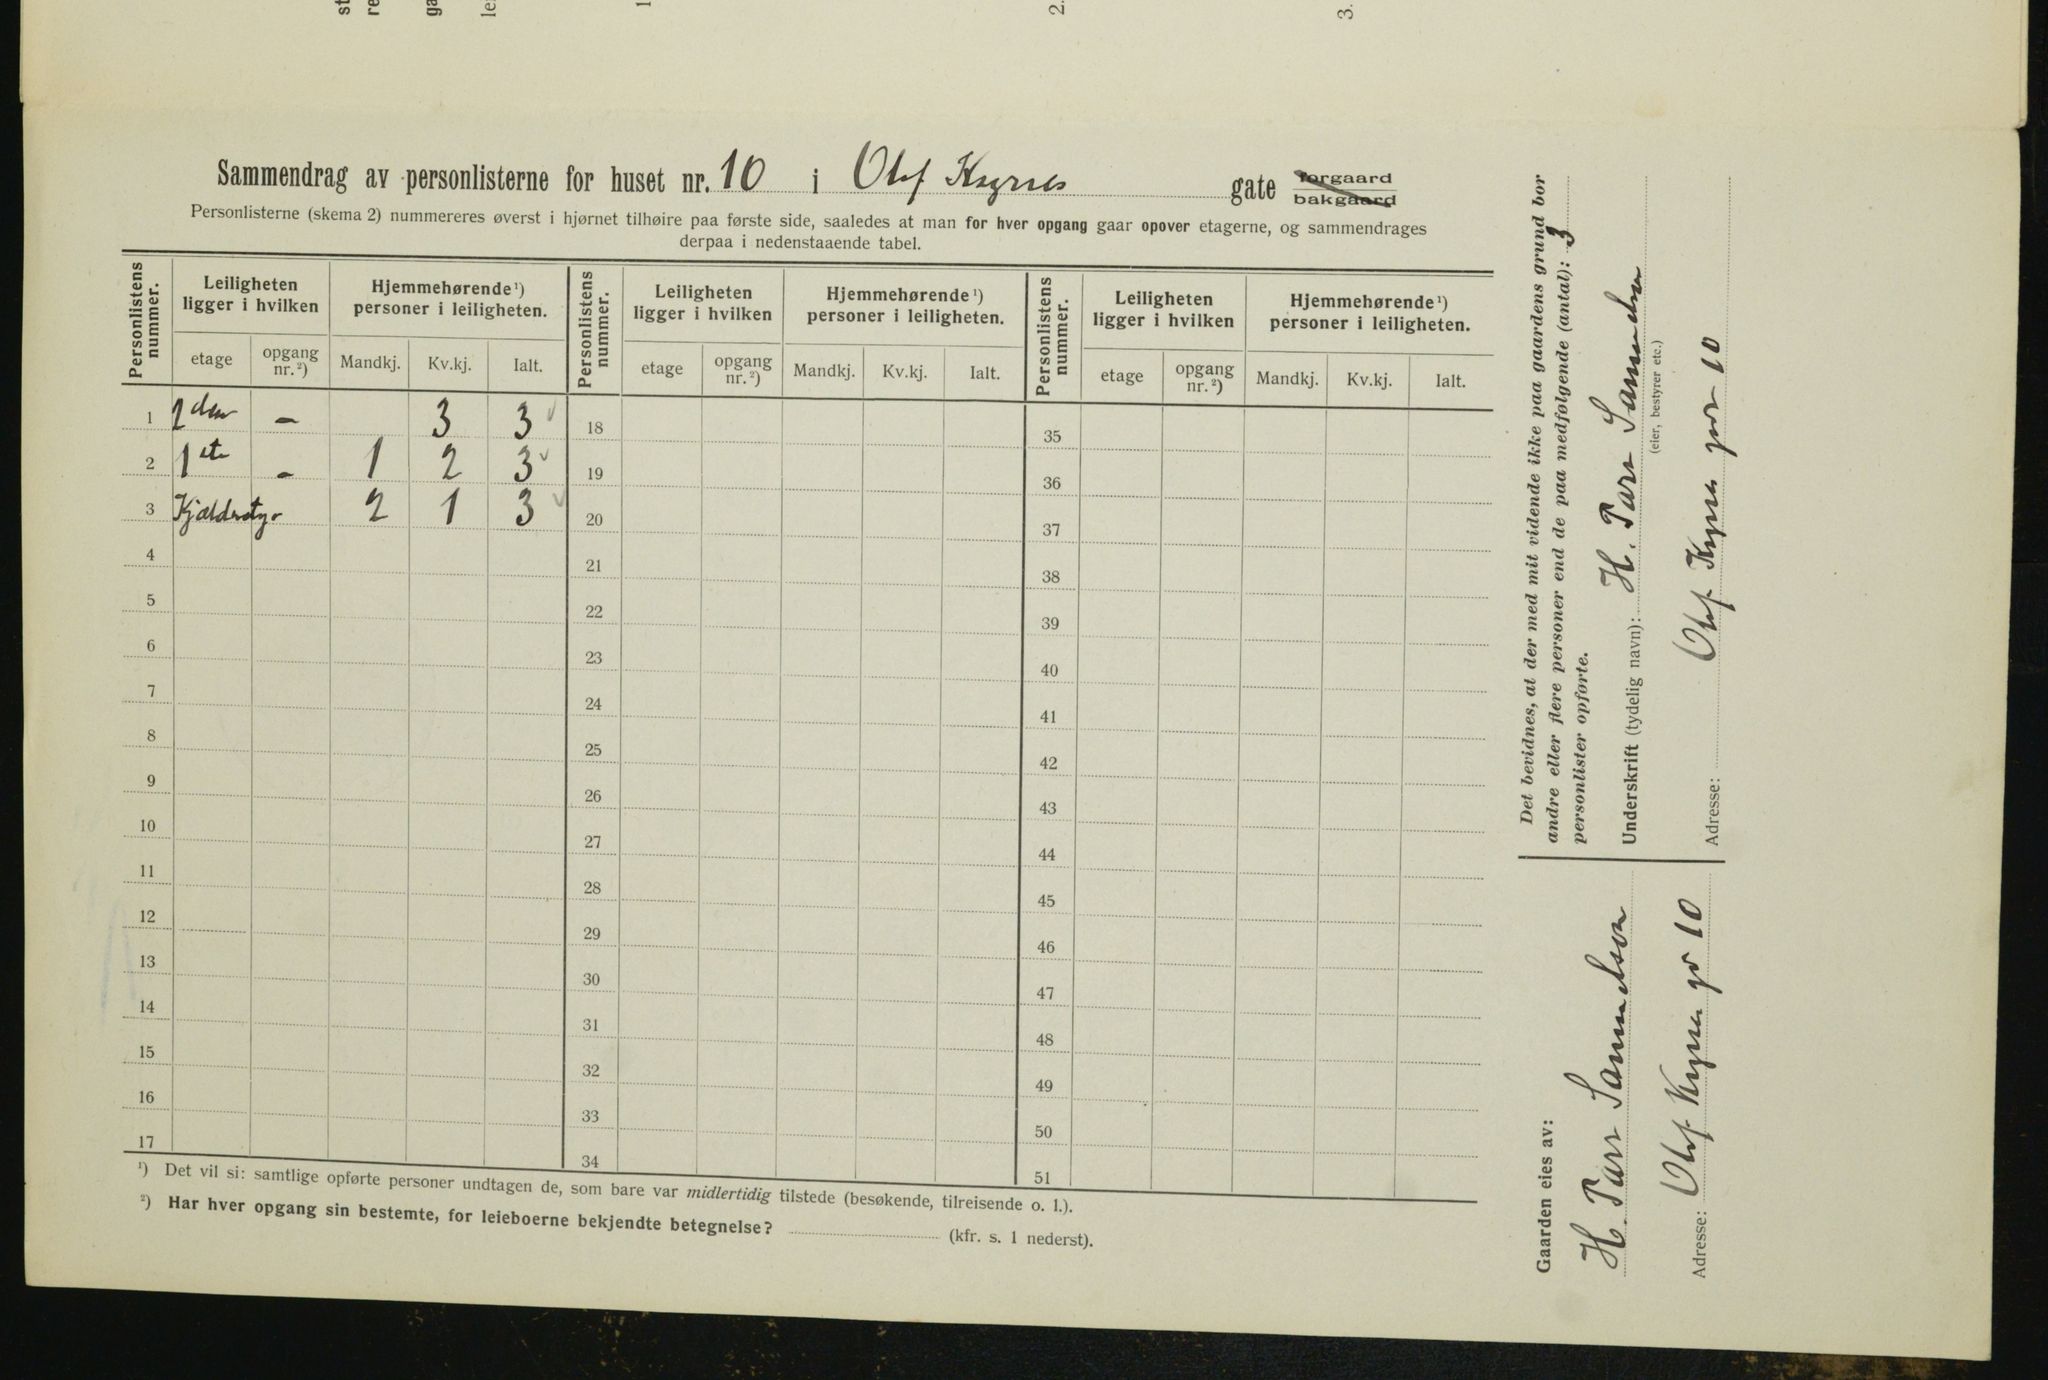 st
re
ga
le
1
2.
3.
Sammendrag av personlisterne for huset nr. 10 i Olof Kyrres gate forgaard bakgaard
Personlisterne (skema 2) nummereres øverst i hjørnet tilhøire paa første side, saaledes at man for hver opgang gaar opover etagerne, og sammendrages
derpaa i nedenstaaende tabel.
Personlistens nummer. Leiligheten ligger i hvilken Hjemmehørende ¹) personer i leiligheten. Personlistens nummer. Leiligheten ligger i hvilken Hjemmehørende ¹) personer i leiligheten. Personlistens nummer. Leiligheten ligger i hvilken Hjemmehørende ¹) personer i leiligheten.
etage opgang nr. ²) Mandkj. Kv.kj. Ialt. etage opgang nr. ²) Mandkj. Kv.kj. Ialt. etage opgang nr. ²) Mandkj. Kv.kj. Ialt.
1 2den – 3 3 18 35
2 1ste – 1 2 3 19 36
3 2 1 3 20 37
4 21 38
5 22 39
6 23 40
7 24 41
8 25 42
9 26 43
10 27 44
11 28 45
12 29 46
13 30 47
14 31 48
15 32 49
16 33 50
17 34 51
¹) Det vil si: samtlige opførte personer undtagen de, som bare var midlertidig tilstede (besøkende, tilreisende o. l.).
²) Har hver opgang sin bestemte, for leieboerne bekjendte betegnelse? (kfr. s. 1 nederst).
Det bevidnes, at der med mit vidende ikke paa gaardens grund bor
andre eller flere personer end de paa medfølgende (antal): 3
personlister opførte.
Underskrift (tydelig navn): H. Parr Samuelsen
(eier, bestyrer etc.)
Adresse: Olof Kyrres 10
Gaarden eies av:
H. Parr Samuelson
Adresse: Olof Kyrres gt 10